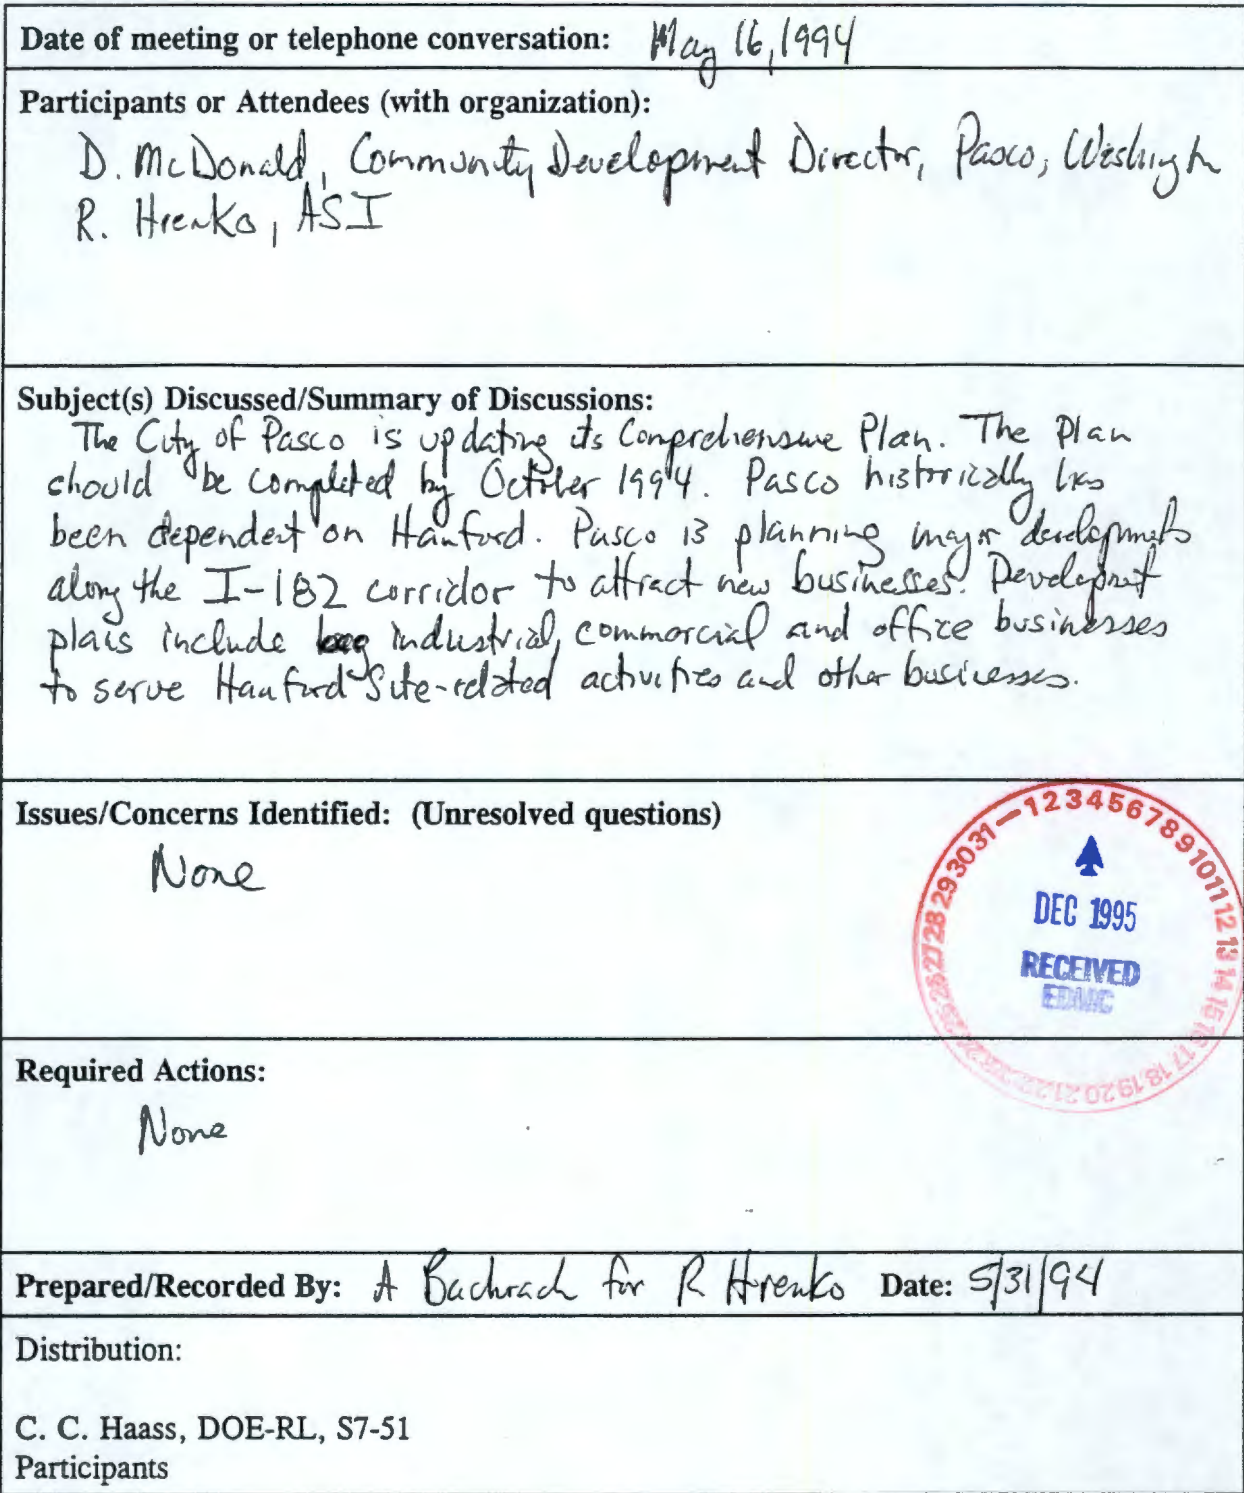 Date of meeting or telephone conversation: May 16, 1994
Participants or Attendees (with organization):
D. McDonald, Community Development Director, Pasco, Washington
R. Hrenko, ASI
Subject(s) Discussed/Summary of Discussions:
The City of Pasco is updating its Comprehensive Plan. The Plan
should be completed by October 1994. Pasco historically has
been dependent on Hanford. Pasco is planning major developments
along the I-182 corridor to attract new businesses. Development
plans include industrial, commercial and office businesses
to serve Hanford Site-related activities and other businesses.
Issues/Concerns Identified: (Unresolved questions)
None
1 2 3 4 5 6 7 8 9 10 11 12 13 14 15 16 17 18 19 20 21 22 23 24 25 26 27 28 29 30 31
DEC 1995
RECEIVED
EDMC
Required Actions:
None
Prepared/Recorded By: A Bachrach for R Hrenko Date: 5/31/94
Distribution:
C. C. Haass, DOE-RL, S7-51
Participants